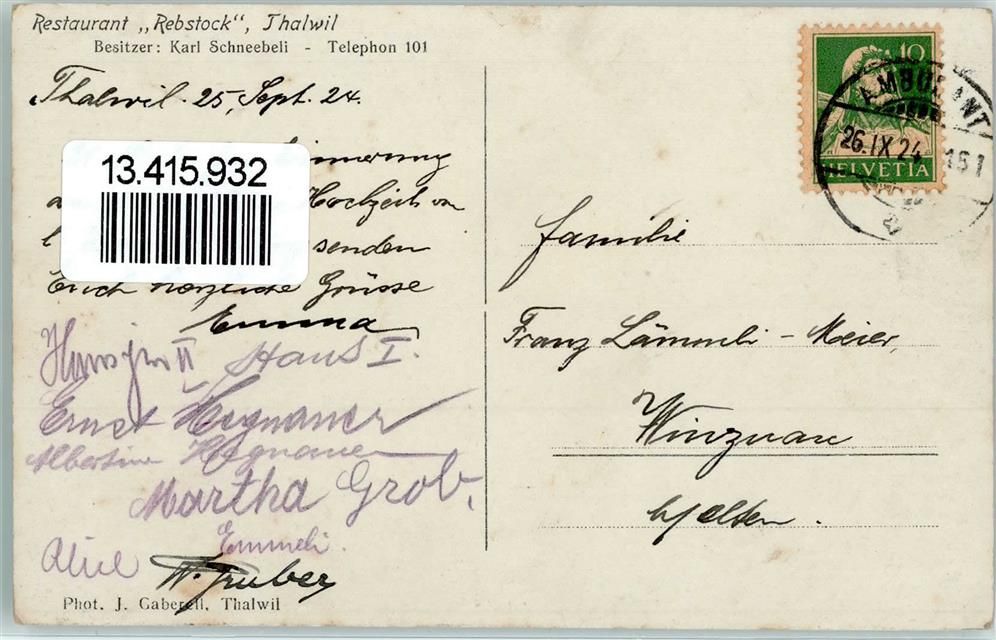 Restaurant „Rebstock", Thalwil
Besitzer: Karl Schneebeli - Telephon 101
Thalwil 25, Sept. 24.
13.415.932
Hochzeit von
senden
Euch herzliche Grüsse
Emma
Hans jun II Hans I.
Ernst Hegnauer
Albertine Hegnauer
Martha Grob.
Emmeli.
Alice
W. Gruber
Phot. J. Gaberell, Thalwil
10
HELVETIA
AMBULANT
26.IX.24
151
Familie
Franz Lämmli - Meier,
Winznau
b/Olten.